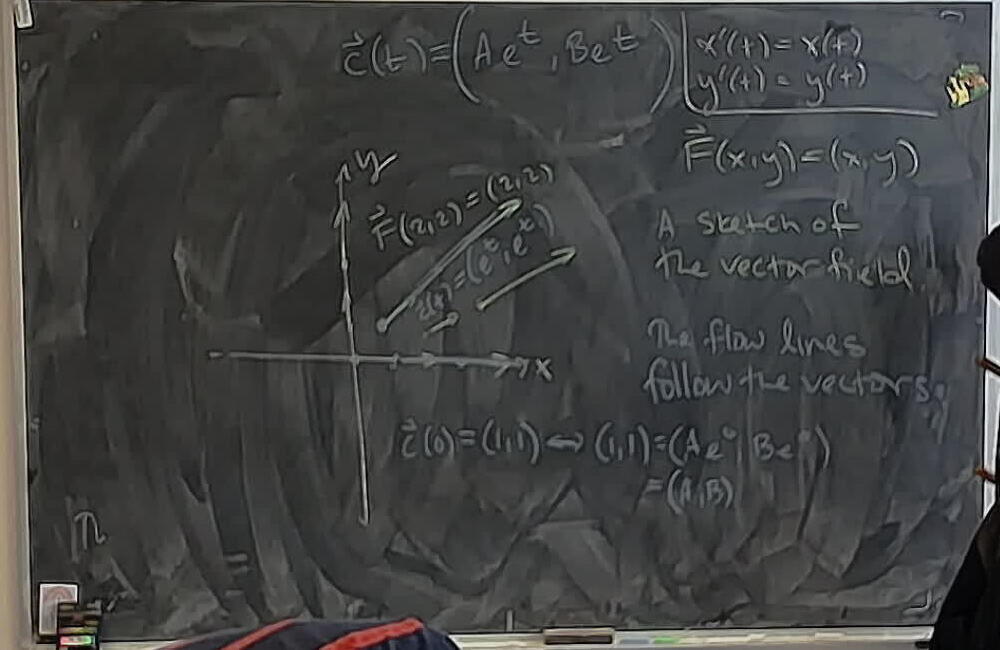 c⃗(t)=(Ae^t, Be^t)
x'(t)=x(t)
y'(t)=y(t)
F⃗(x,y)=(x,y)
y
F⃗(2,2)=(2,2)
c⃗(t)=(e^t, e^t)
x
A sketch of
the vector field.
The flow lines
follow the vectors.
c⃗(0)=(1,1)↔(1,1)=(Ae^0, Be^0)
=(A,B)